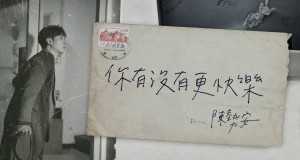 你有沒有更快樂
陳勢安